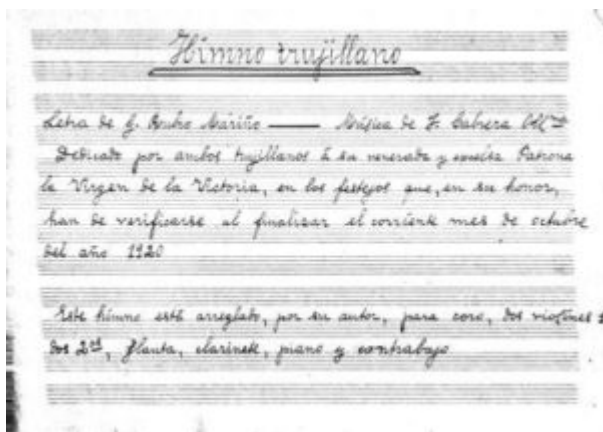 Himno trujillano
Letra de G. Rubio Mariño — Música de F. Cabrera
Dedicado por ambos trujillanos á su venerada y excelsa Patrona
la Virgen de la Victoria, en los festejos que, en su honor,
han de verificarse al finalizar el corriente mes de octubre
del año 1920
Este himno está arreglado, por su autor, para coro, dos violines
dos 2ᵒˢ, flauta, clarinete, piano y contrabajo